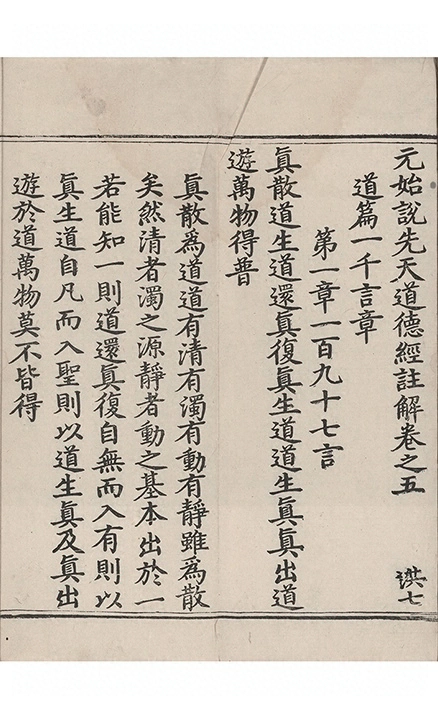 元始說先天道德經註解卷之五 洪七
道篇一千言章
第一章一百九十七言
眞散道生道還眞復眞生道道生眞眞出道
遊萬物得普
眞散爲道道有清有濁有動有靜雖爲散
矣然清者濁之源靜者動之基本出於一
若能知一則道還眞復自無而入有則以
眞生道自凡而入聖則以道生眞及眞出
遊於道萬物莫不皆得